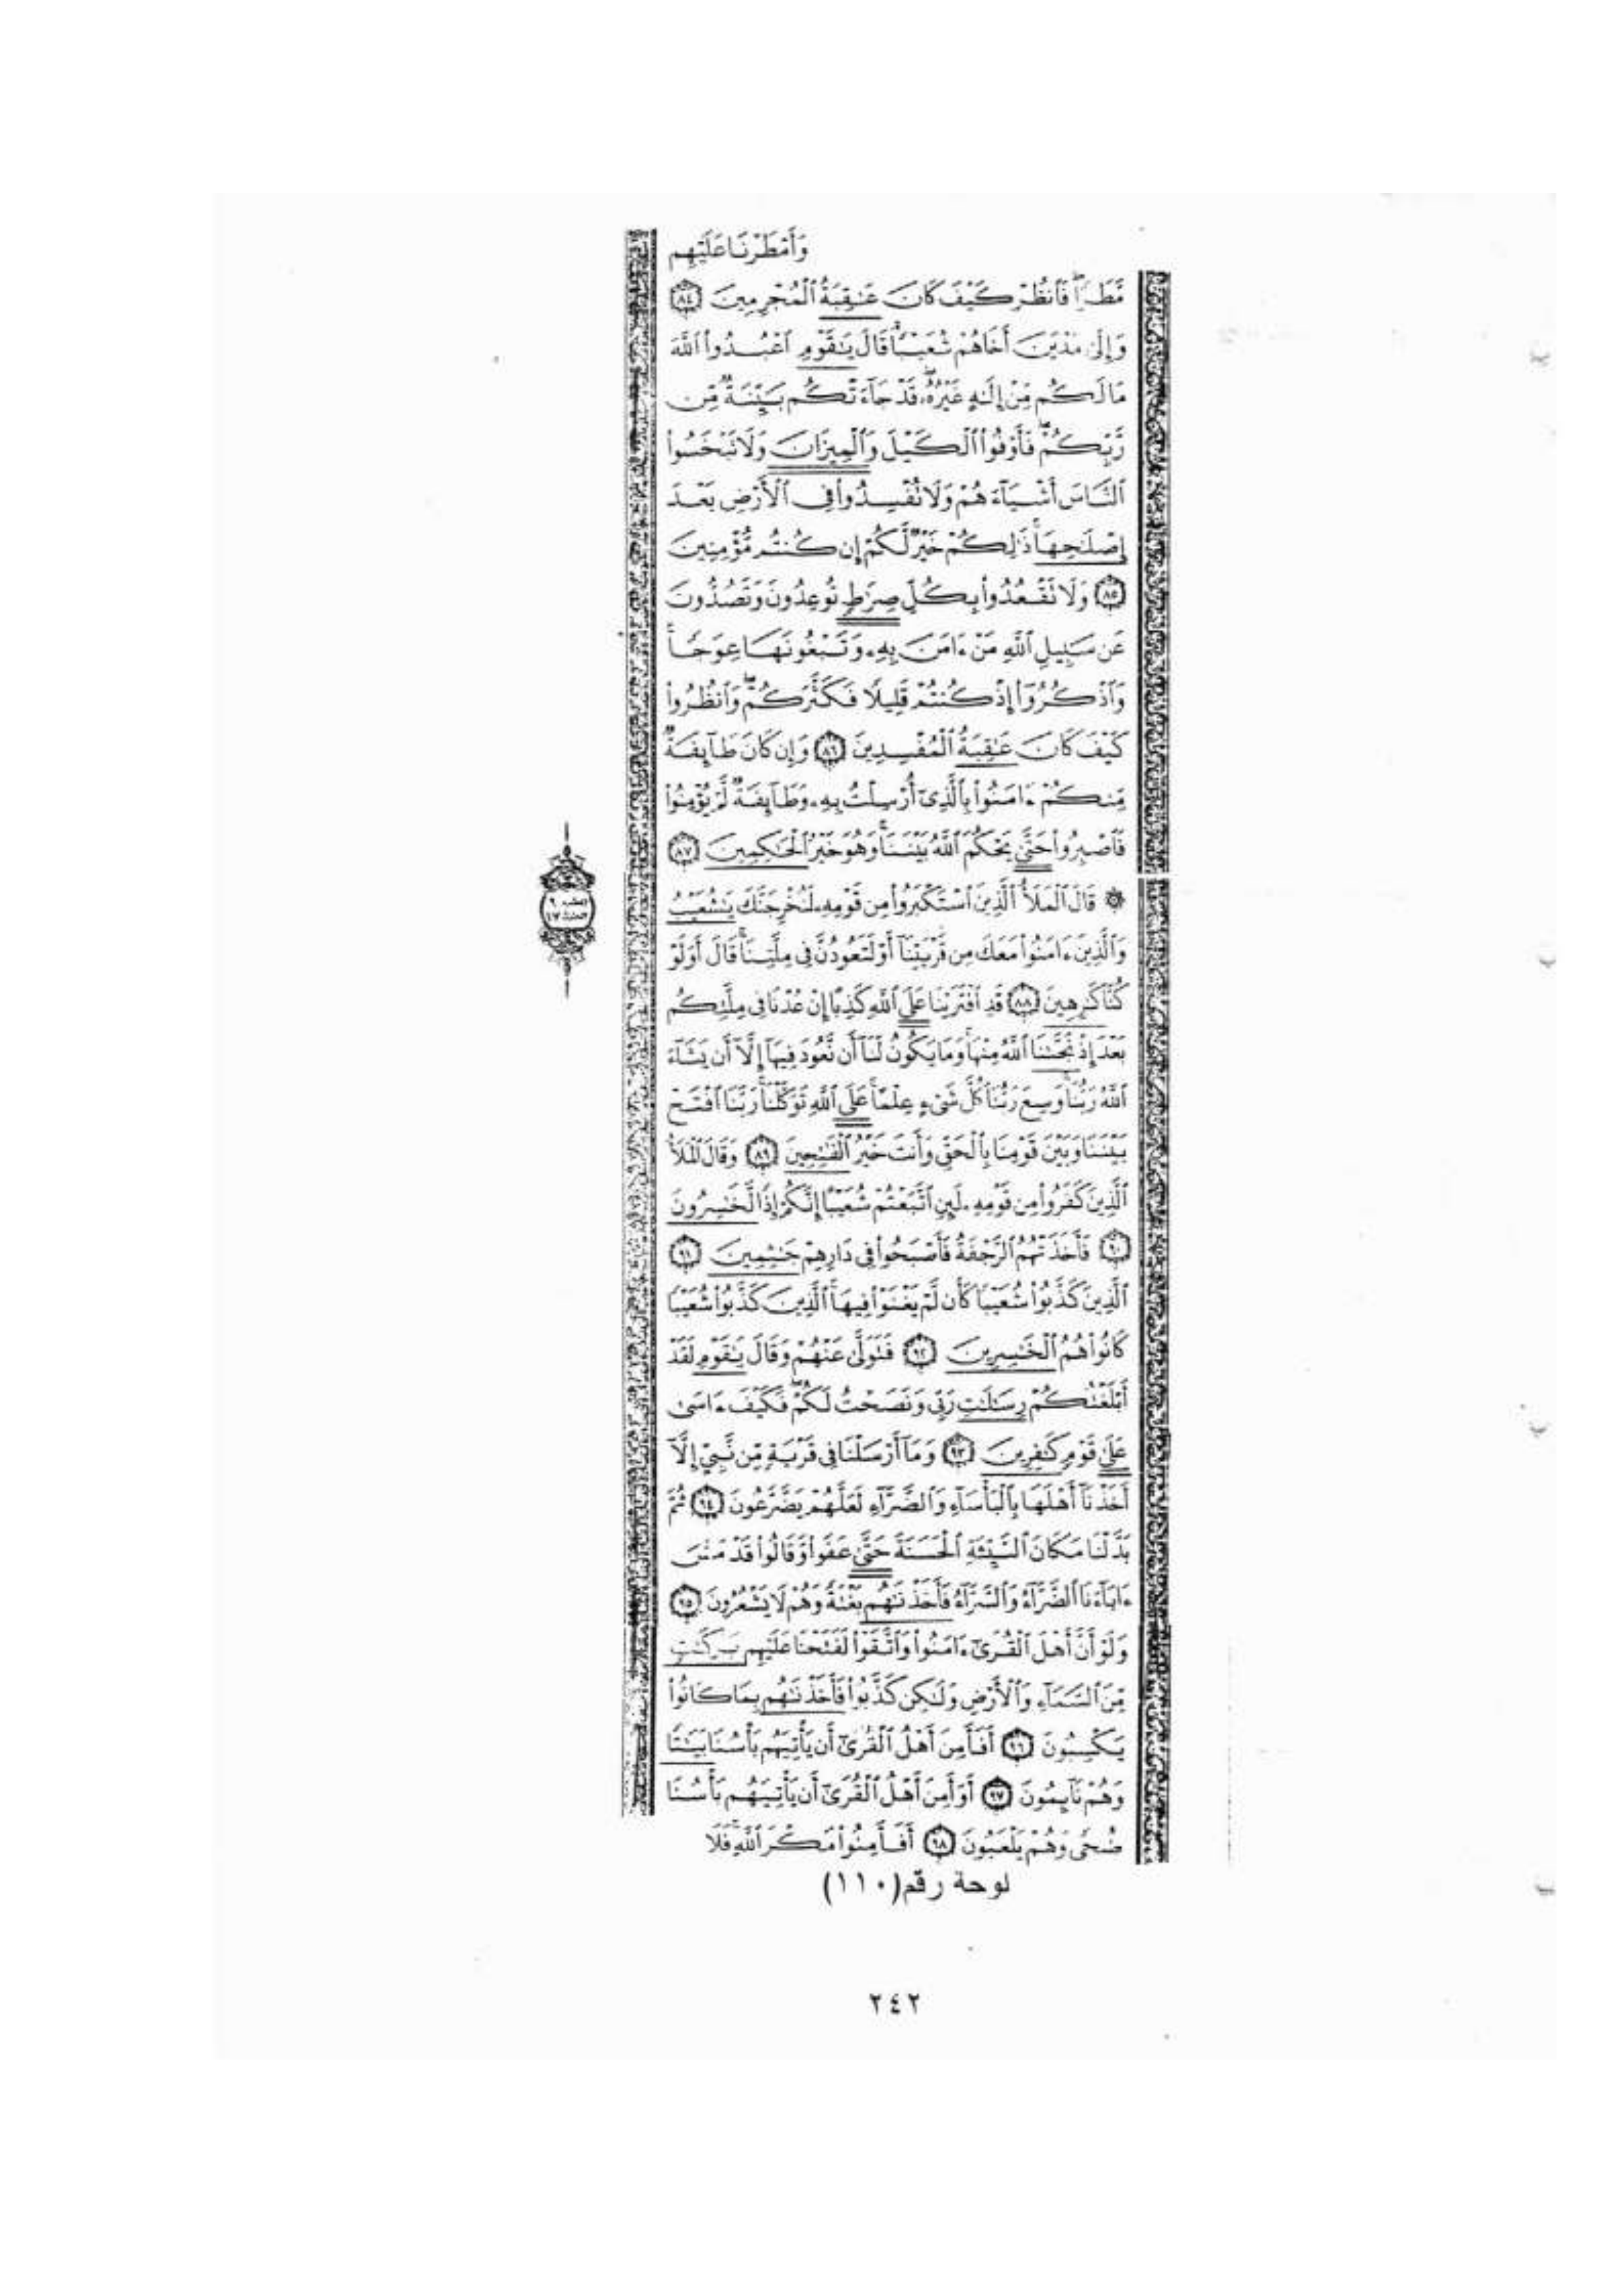 وَأَمْطَرْنَا عَلَيْهِم
مَّطَرًاۖ فَٱنظُرْ كَيْفَ كَانَ عَٰقِبَةُ ٱلْمُجْرِمِينَ ٨٤
وَإِلَىٰ مَدْيَنَ أَخَاهُمْ شُعَيْبًاۗ قَالَ يَٰقَوْمِ ٱعْبُدُوا۟ ٱللَّهَ
مَا لَكُم مِّنْ إِلَٰهٍ غَيْرُهُۥۖ قَدْ جَآءَتْكُم بَيِّنَةٌ مِّن
رَّبِّكُمْۖ فَأَوْفُوا۟ ٱلْكَيْلَ وَٱلْمِيزَانَ وَلَا تَبْخَسُوا۟
ٱلنَّاسَ أَشْيَآءَهُمْ وَلَا تُفْسِدُوا۟ فِى ٱلْأَرْضِ بَعْدَ
إِصْلَٰحِهَاۚ ذَٰلِكُمْ خَيْرٌ لَّكُمْ إِن كُنتُم مُّؤْمِنِينَ
٨٥ وَلَا تَقْعُدُوا۟ بِكُلِّ صِرَٰطٍ تُوعِدُونَ وَتَصُدُّونَ
عَن سَبِيلِ ٱللَّهِ مَنْ ءَامَنَ بِهِۦ وَتَبْغُونَهَا عِوَجًاۚ
وَٱذْكُرُوٓا۟ إِذْ كُنتُمْ قَلِيلًا فَكَثَّرَكُمْۖ وَٱنظُرُوا۟
كَيْفَ كَانَ عَٰقِبَةُ ٱلْمُفْسِدِينَ ٨٦ وَإِن كَانَ طَآئِفَةٌ
مِّنكُمْ ءَامَنُوا۟ بِٱلَّذِىٓ أُرْسِلْتُ بِهِۦ وَطَآئِفَةٌ لَّمْ يُؤْمِنُوا۟
فَٱصْبِرُوا۟ حَتَّىٰ يَحْكُمَ ٱللَّهُ بَيْنَنَاۚ وَهُوَ خَيْرُ ٱلْحَٰكِمِينَ ٨٧
۞ قَالَ ٱلْمَلَأُ ٱلَّذِينَ ٱسْتَكْبَرُوا۟ مِن قَوْمِهِۦ لَنُخْرِجَنَّكَ يَٰشُعَيْبُ
وَٱلَّذِينَ ءَامَنُوا۟ مَعَكَ مِن قَرْيَتِنَآ أَوْ لَتَعُودُنَّ فِى مِلَّتِنَاۚ قَالَ أَوَلَوْ
كُنَّا كَٰرِهِينَ ٨٨ قَدِ ٱفْتَرَيْنَا عَلَى ٱللَّهِ كَذِبًا إِنْ عُدْنَا فِى مِلَّتِكُم
بَعْدَ إِذْ نَجَّىٰنَا ٱللَّهُ مِنْهَاۚ وَمَا يَكُونُ لَنَآ أَن نَّعُودَ فِيهَآ إِلَّآ أَن يَشَآءَ
ٱللَّهُ رَبُّنَاۚ وَسِعَ رَبُّنَا كُلَّ شَىْءٍ عِلْمًاۚ عَلَى ٱللَّهِ تَوَكَّلْنَاۚ رَبَّنَا ٱفْتَحْ
بَيْنَنَا وَبَيْنَ قَوْمِنَا بِٱلْحَقِّ وَأَنتَ خَيْرُ ٱلْفَٰتِحِينَ ٨٩ وَقَالَ ٱلْمَلَأُ
ٱلَّذِينَ كَفَرُوا۟ مِن قَوْمِهِۦ لَئِنِ ٱتَّبَعْتُمْ شُعَيْبًا إِنَّكُمْ إِذًا لَّخَٰسِرُونَ
٩٠ فَأَخَذَتْهُمُ ٱلرَّجْفَةُ فَأَصْبَحُوا۟ فِى دَارِهِمْ جَٰثِمِينَ ٩١
ٱلَّذِينَ كَذَّبُوا۟ شُعَيْبًا كَأَن لَّمْ يَغْنَوْا۟ فِيهَاۚ ٱلَّذِينَ كَذَّبُوا۟ شُعَيْبًا
كَانُوا۟ هُمُ ٱلْخَٰسِرِينَ ٩٢ فَتَوَلَّىٰ عَنْهُمْ وَقَالَ يَٰقَوْمِ لَقَدْ
أَبْلَغْتُكُمْ رِسَٰلَٰتِ رَبِّى وَنَصَحْتُ لَكُمْۖ فَكَيْفَ ءَاسَىٰ
عَلَىٰ قَوْمٍ كَٰفِرِينَ ٩٣ وَمَآ أَرْسَلْنَا فِى قَرْيَةٍ مِّن نَّبِىٍّ إِلَّآ
أَخَذْنَآ أَهْلَهَا بِٱلْبَأْسَآءِ وَٱلضَّرَّآءِ لَعَلَّهُمْ يَضَّرَّعُونَ ٩٤ ثُمَّ
بَدَّلْنَا مَكَانَ ٱلسَّيِّئَةِ ٱلْحَسَنَةَ حَتَّىٰ عَفَوا۟ وَّقَالُوا۟ قَدْ مَسَّ
ءَابَآءَنَا ٱلضَّرَّآءُ وَٱلسَّرَّآءُ فَأَخَذْنَٰهُم بَغْتَةً وَهُمْ لَا يَشْعُرُونَ ٩٥
وَلَوْ أَنَّ أَهْلَ ٱلْقُرَىٰٓ ءَامَنُوا۟ وَٱتَّقَوْا۟ لَفَتَحْنَا عَلَيْهِم بَرَكَٰتٍ
مِّنَ ٱلسَّمَآءِ وَٱلْأَرْضِ وَلَٰكِن كَذَّبُوا۟ فَأَخَذْنَٰهُم بِمَا كَانُوا۟
يَكْسِبُونَ ٩٦ أَفَأَمِنَ أَهْلُ ٱلْقُرَىٰٓ أَن يَأْتِيَهُم بَأْسُنَا بَيَٰتًا
وَهُمْ نَآئِمُونَ ٩٧ أَوَأَمِنَ أَهْلُ ٱلْقُرَىٰٓ أَن يَأْتِيَهُم بَأْسُنَا
ضُحًى وَهُمْ يَلْعَبُونَ ٩٨ أَفَأَمِنُوا۟ مَكْرَ ٱللَّهِۚ فَلَا
لوحة رقم(١١٠)
٢٤٢